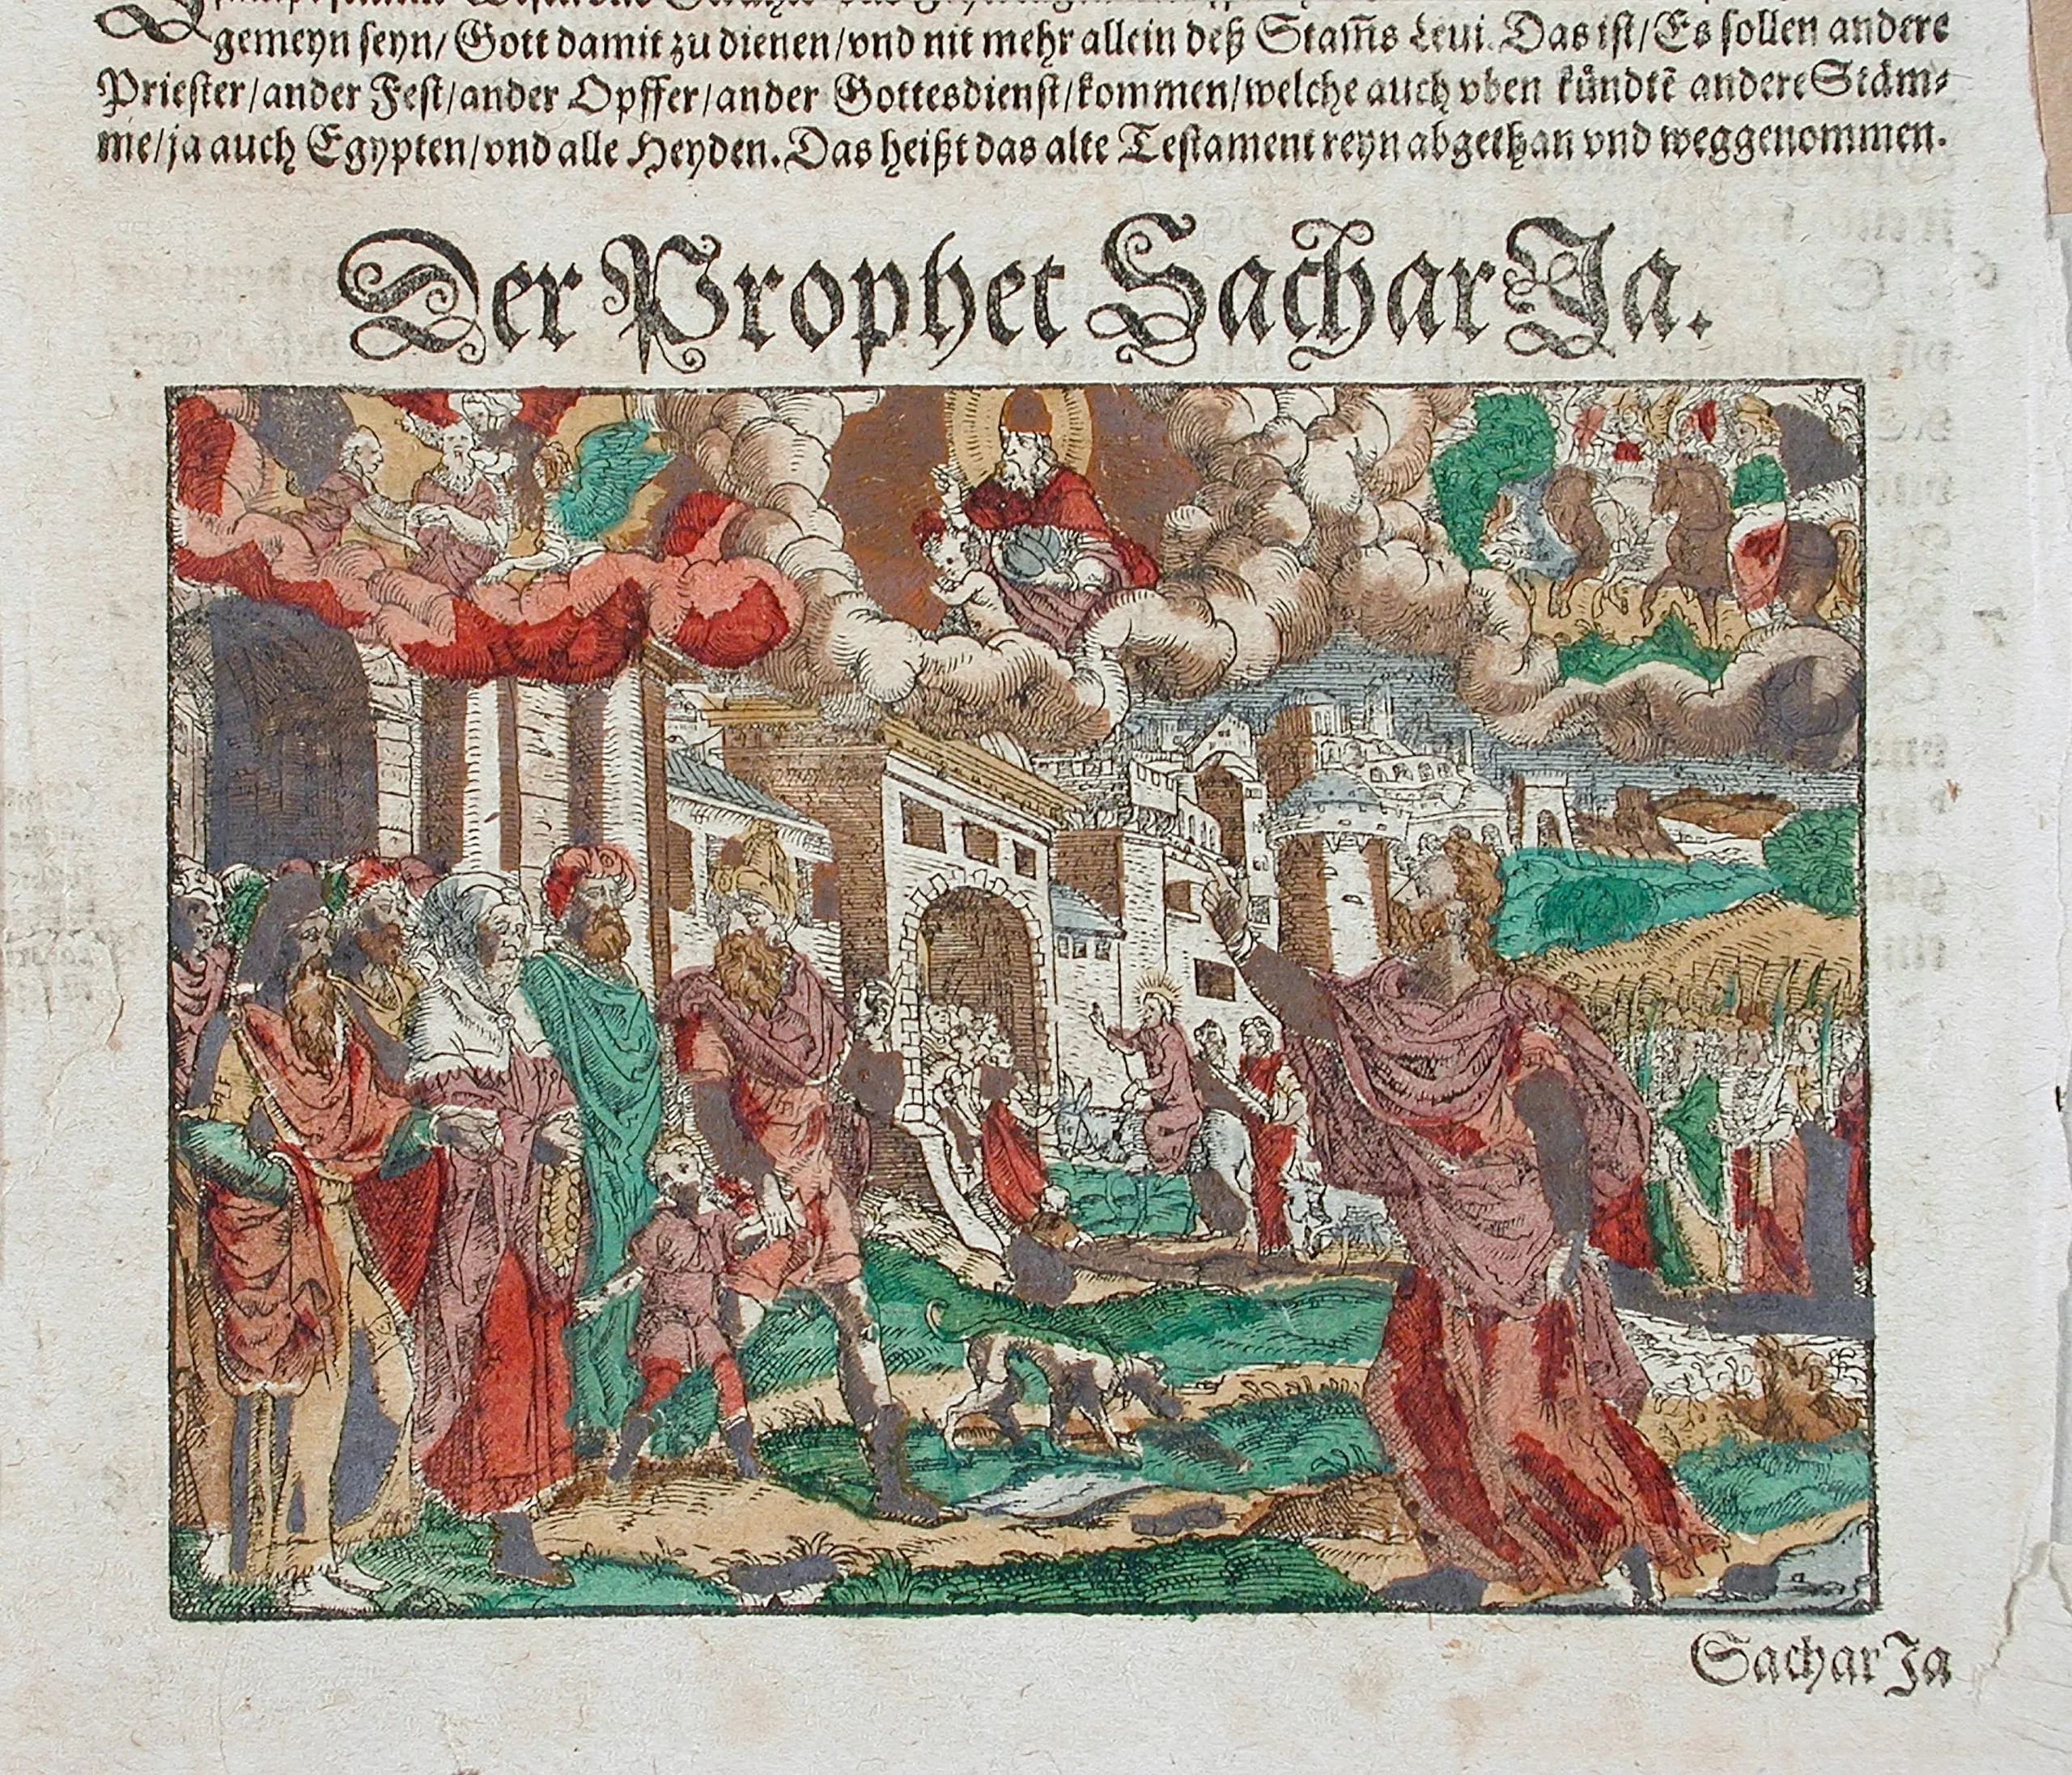 gemeyn seyn/ Gott damit zu dienen/vnd nit mehr allein deß Stam̃s Leui. Das ist/Es sollen andere
Priester/ander Fest/ander Opffer/ander Gottesdienst/kommen/welche auch vben kündtẽ andere Stäm⸗
me/ja auch Egypten/vnd alle Heyden. Das heißt das alte Testament reyn abgethan vnd weggenommen.
Der Prophet SacharJa.
SacharJa